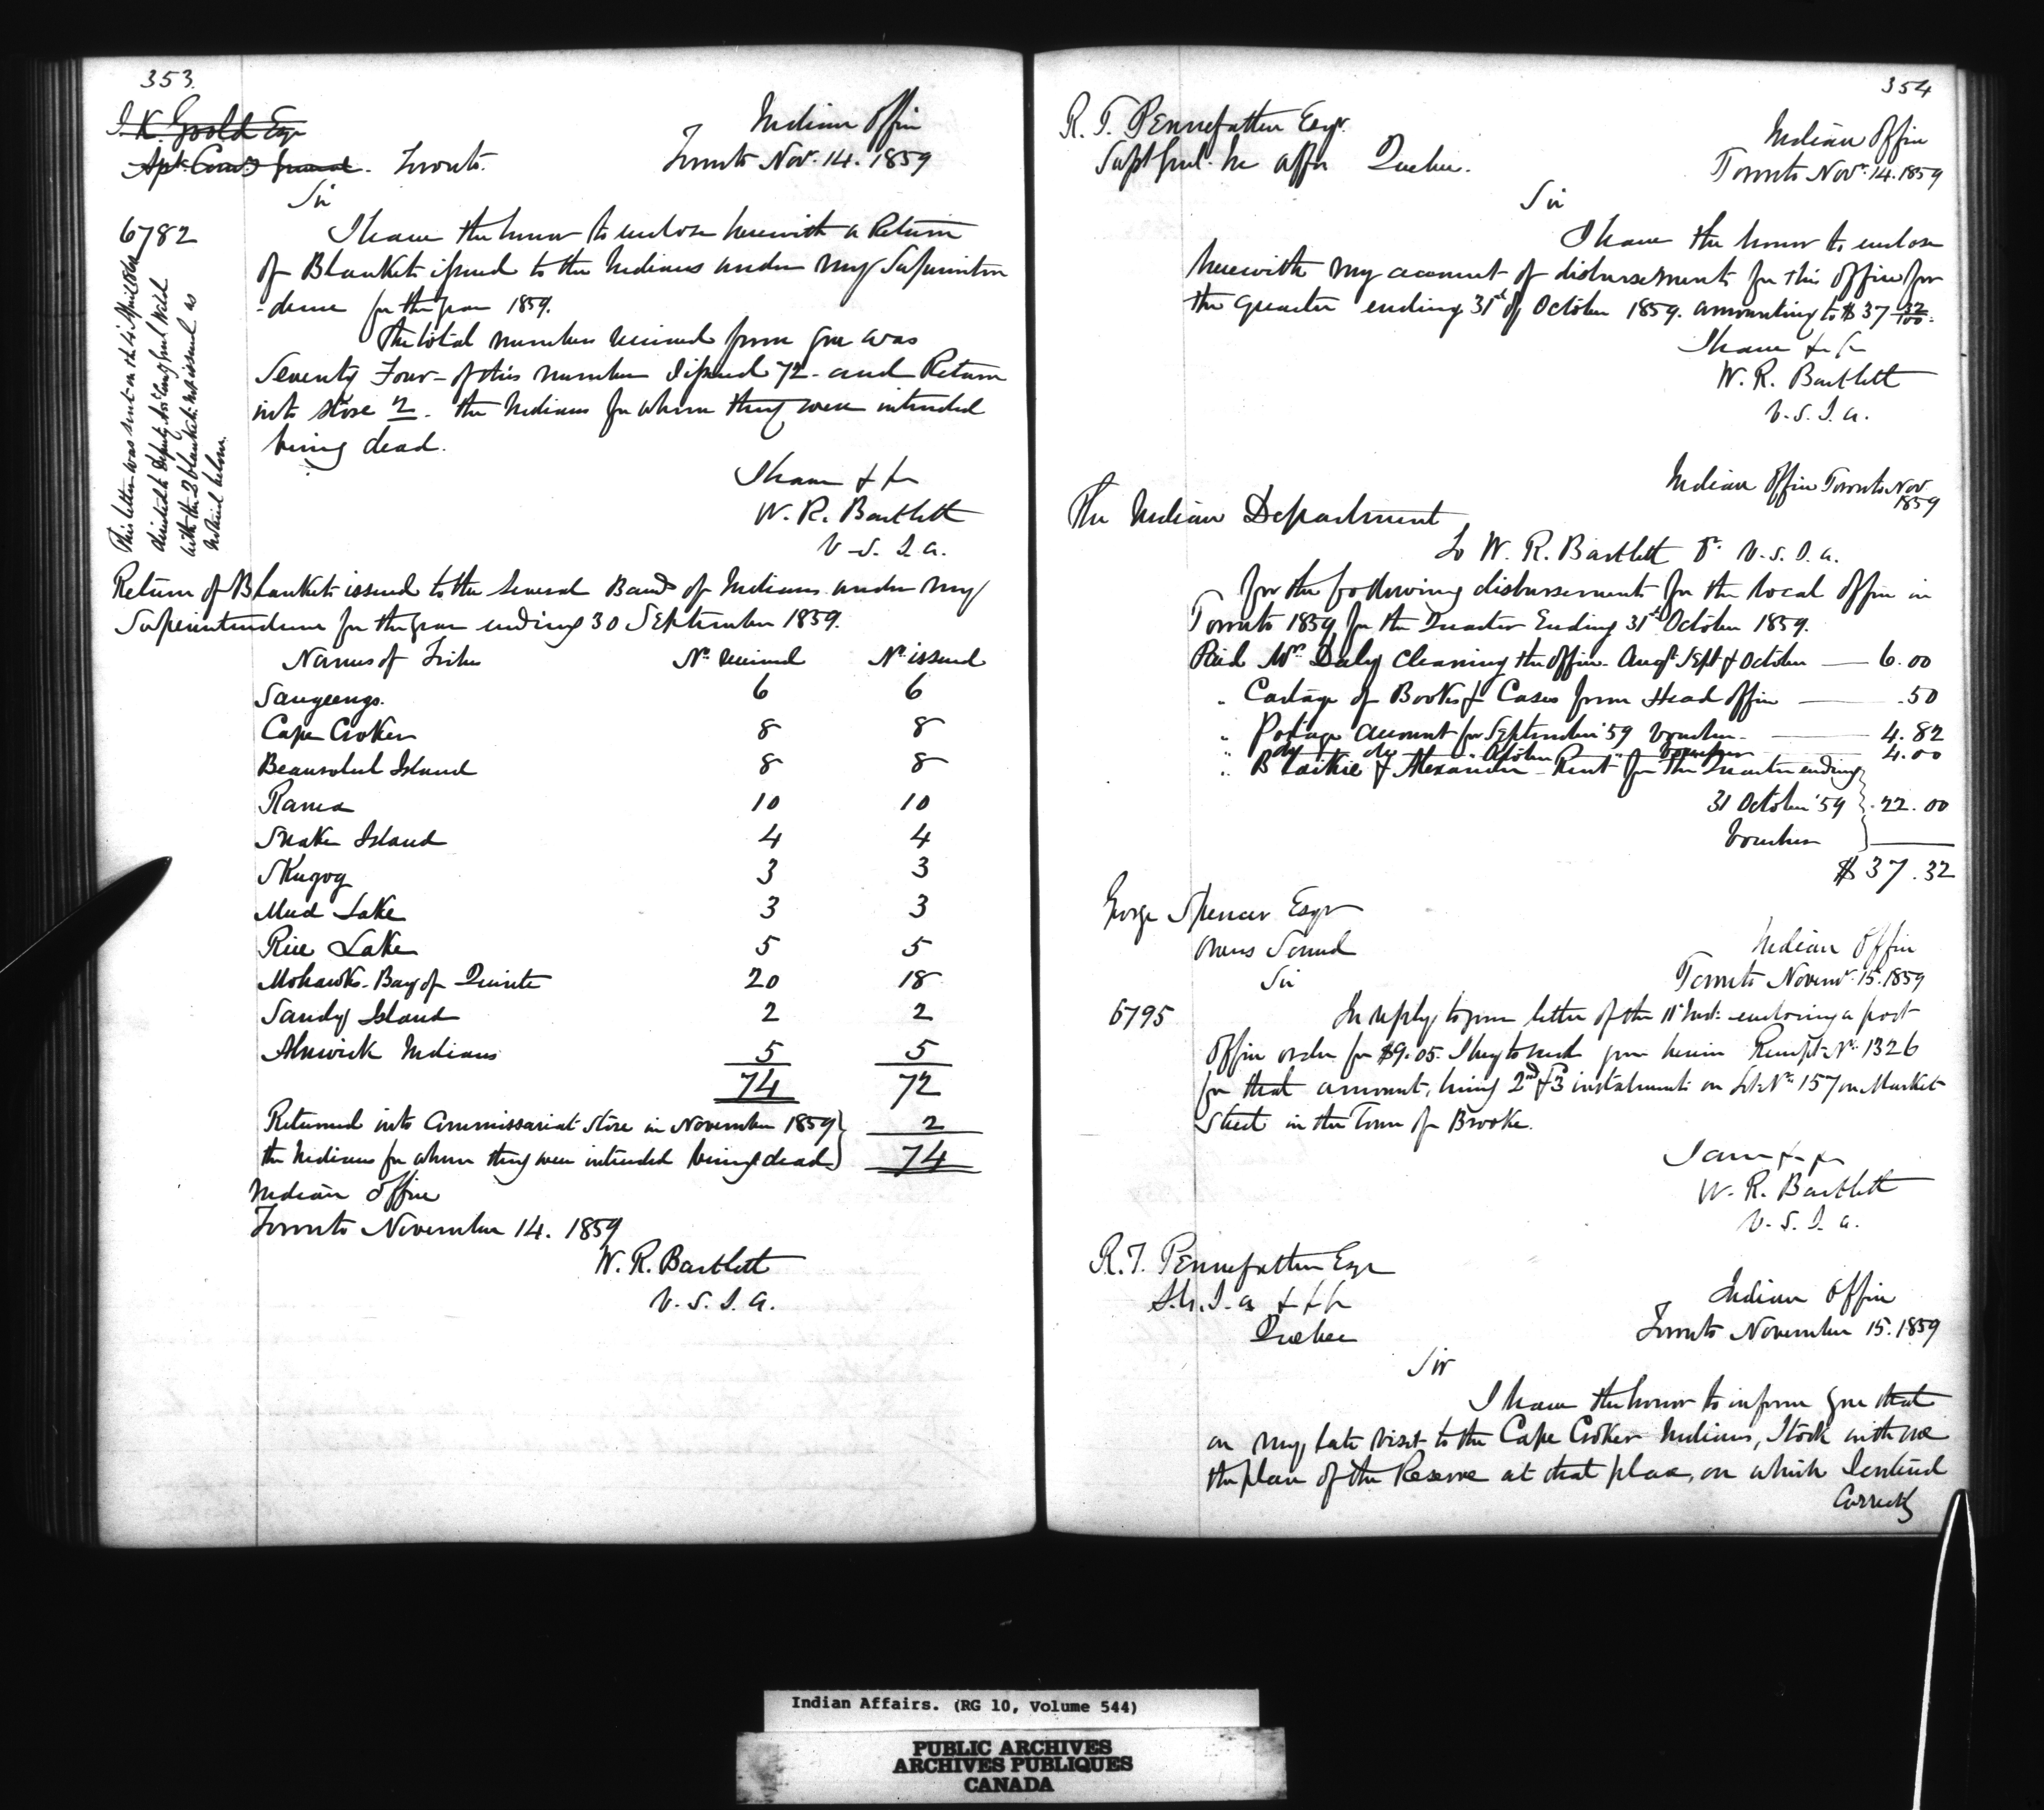 353.
I. K. Goold Esqr
Indian Office
Toronto.
Toronto Nov. 14. 1859
Sir
6782
I have the honor to enclose herewith a Return
of Blankets issued to the Indians under my Superinten
-dence for the year 1859.
The total number received from you was
Seventy Four - of this number I issued 72 - and Return
into store 2 - the Indians for whom they were intended
being dead.
I have &c &c
W. R. Bartlett
V. S. I. A.
This letter was sent on the 4th April 1860
directed to Deputy
with the 2 blankets not issued as
noticed below.
Return of Blankets issued to the several Bands of Indians under my
Superintendence for the year ending 30 September 1859.
Names of Tribe No. received No. issued
Saugeengs. 6 6
Cape Croker 8 8
Beausoleil Island 8 8
Rama 10 10
Snake Island 4 4
Skugog 3 3
Mud Lake 3 3
Rice Lake 5 5
Mohawks - Bay of Quinte 20 18
Sandy Island 2 2
Alnwick Indians 5 5
74 72
Returned into Commissariat Store in November 1859 } 2
the Indians for whom they were intended being dead } 74
Indian Office
Toronto November 14. 1859
W. R. Bartlett
V. S. I. A.
354
R. T. Pennefather Esqr.
Indian Office
Supt Genl. In Affrs Quebec.
Toronto Novr. 14. 1859
Sir
I have the honor to enclose
herewith my account of disbursements for this Office for
the quarter ending 31st of October 1859. amounting to $37 32/100.
I have &c &c
W. R. Bartlett
V. S. I. A.
Indian Office Toronto Nov
1859
The Indian Department
To W. R. Bartlett Dr. V. S. I. A.
For the following disbursements for the local office in
Toronto 1859, for the Quarter Ending 31st October 1859.
Paid Mrs. Daly Cleaning the office - Augt Sept & October — 6.00
" Cartage of Books & Cases from Head office — .50
" Postage account for September '59 Voucher — 4.82
" do do " October " Voucher — 4.00
" Blaikie & Alexander - Rent for the Quarter ending }
31 October '59 } 22.00
Voucher }
$ 37.32
George Spencer Esqr
Owens Sound
Indian Office
Sir
Toronto Novemr. 15. 1859
6795
In reply to your letter of the 11th Inst: enclosing a post
office order for $9.05. I beg to send you herein Receipt No. 1326
for that amount, being 2nd & 3 instalments on Lot No. 157 on Market
Street in the Town of Brooke.
I am &c &c
W. R. Bartlett
V. S. I. A.
R. T. Pennefather Esqr
S. G. I. A &c &c
Indian Office
Quebec
Toronto November 15. 1859
Sir
I have the honor to inform you that
on my late visit to the Cape Croker Indians, I took with me
the plan of the Reserve at that place, on which I entered
Correctly
Indian Affairs. (RG 10, Volume 544)
PUBLIC ARCHIVES
ARCHIVES PUBLIQUES
CANADA